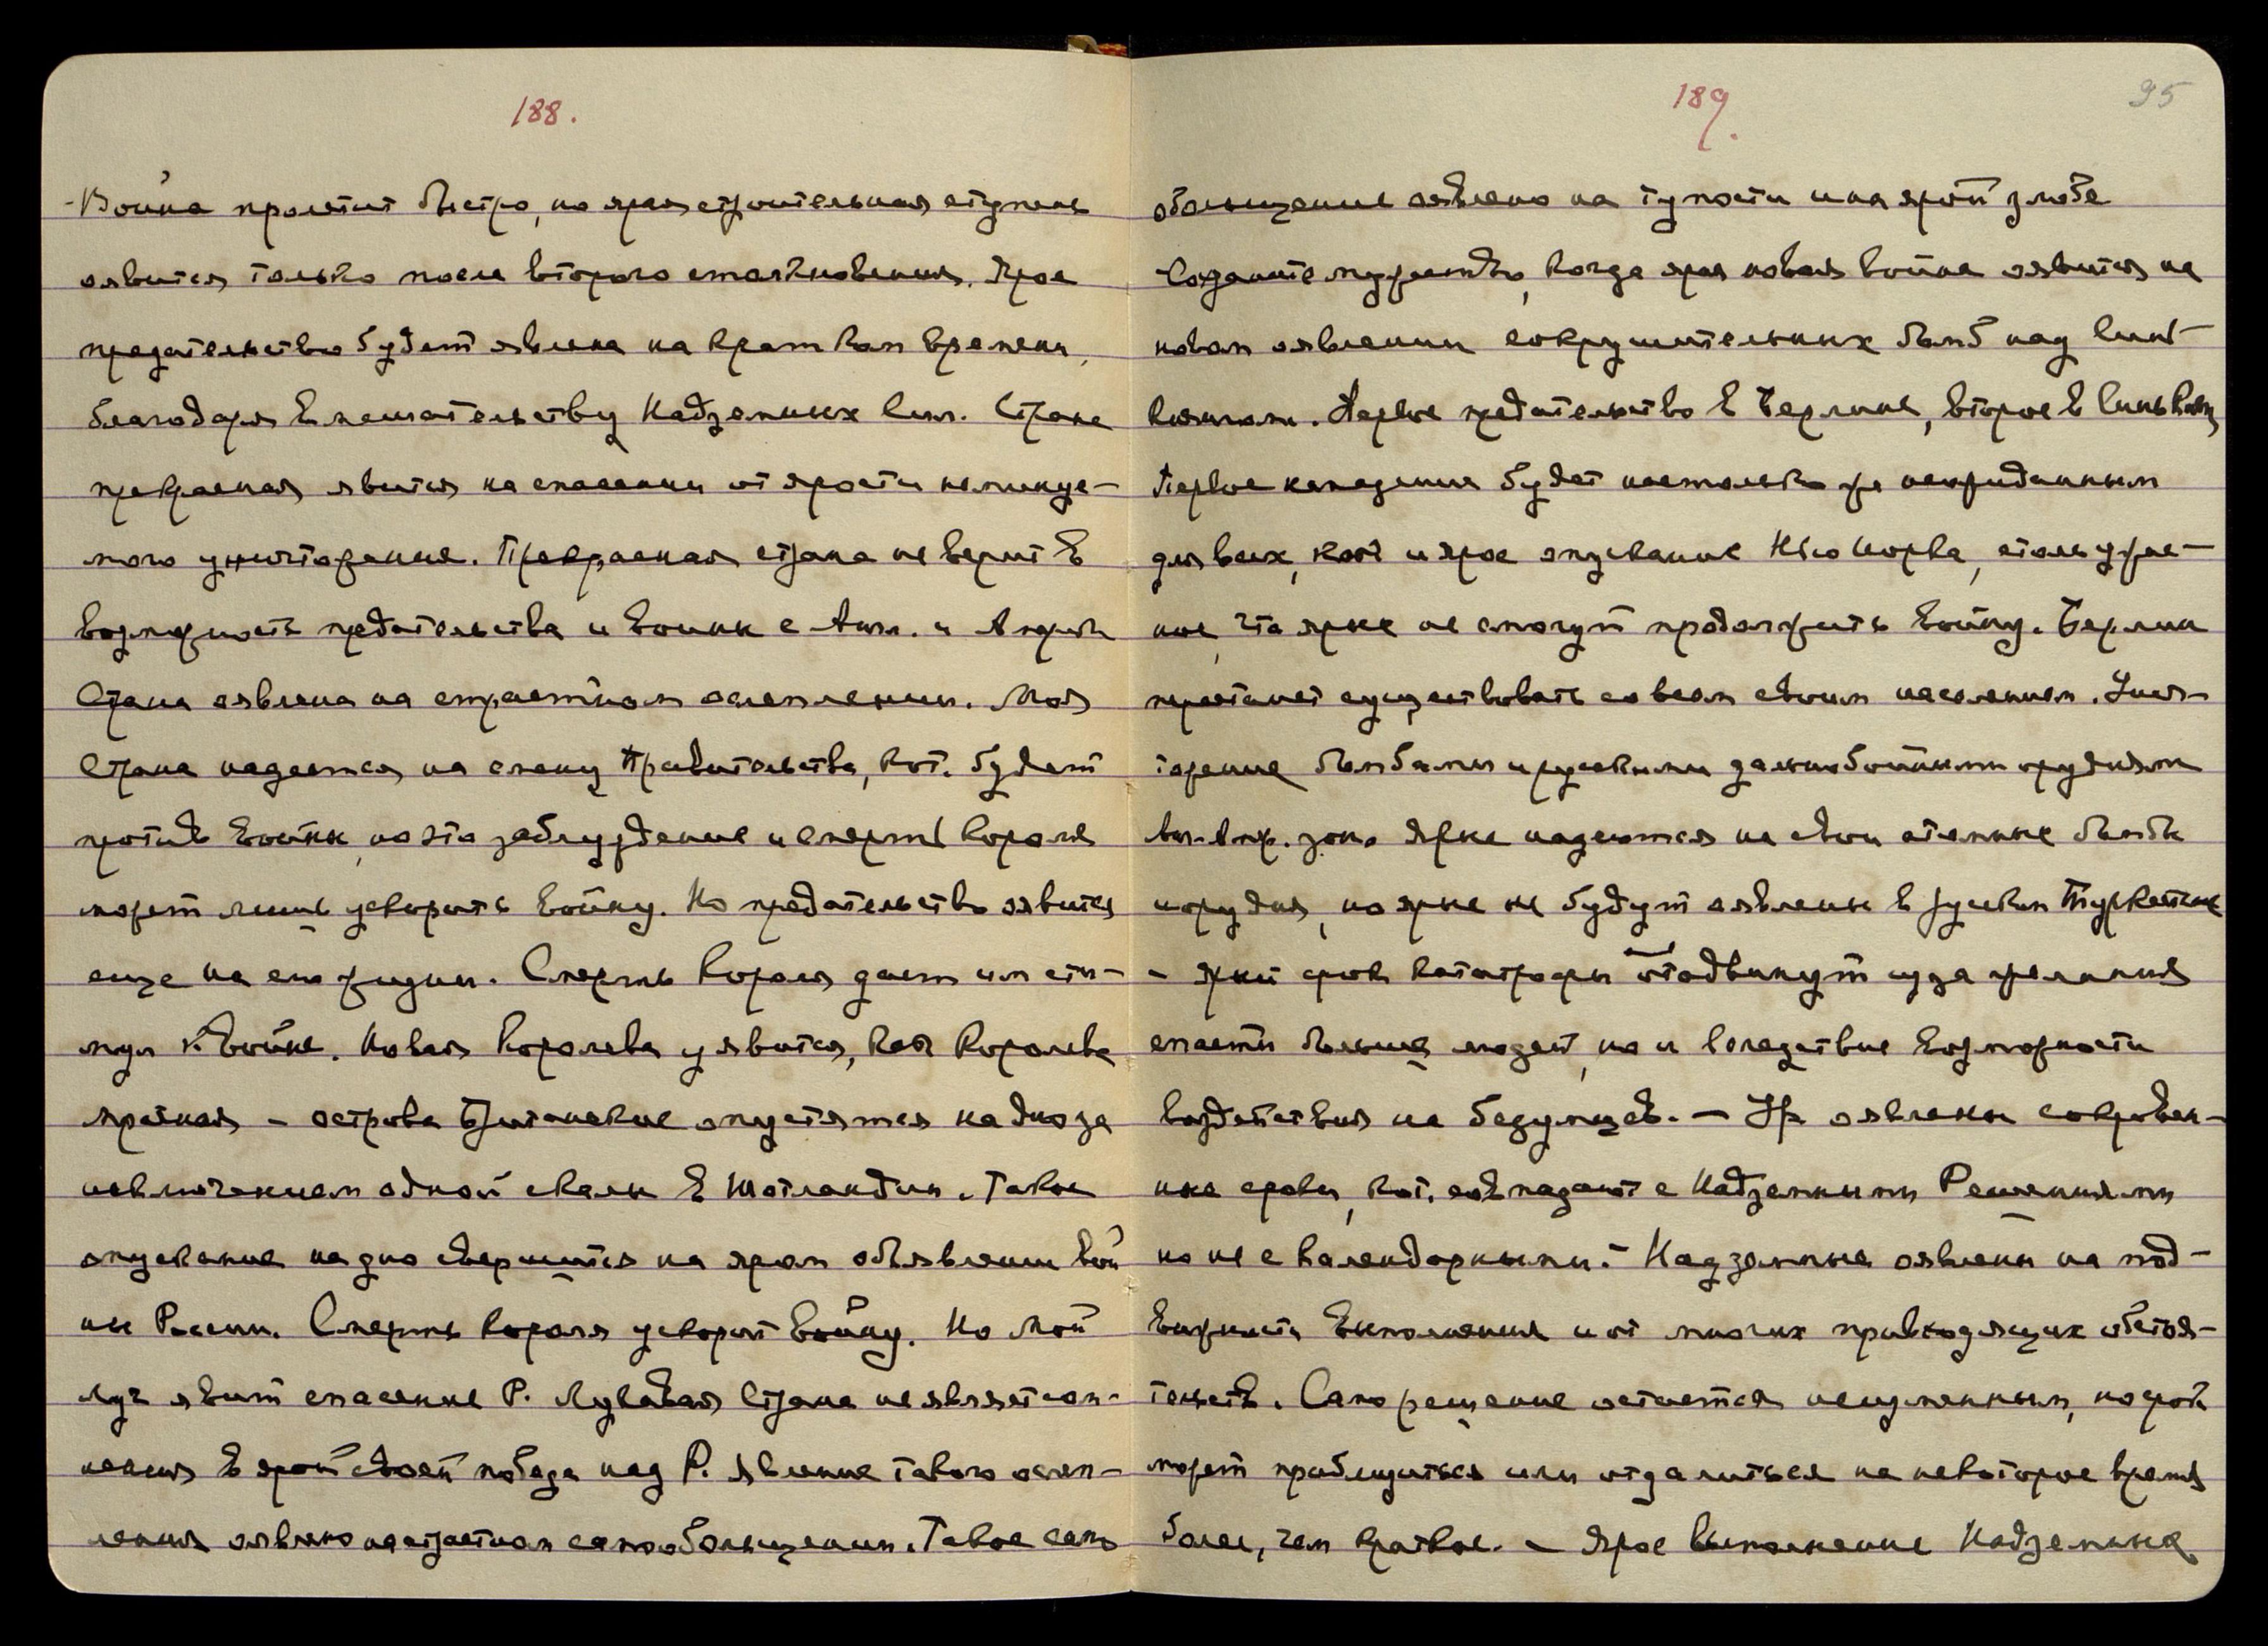 188.
- Война пролетит быстро, но ярая строительная ступень
оявится только после второго столкновения. Ярое
предательство будет явлено на кратком времени,
благодаря вмешательству Надземных Сил. Страна
прекрасная явится на спасении от ярости неминуе-
мого уничтожения. Прекрасная страна не верит в
возможность предательства и войны с Англ. и Америк
Страна оявлена на страстном ослеплении. Моя
Страна надеется на смену Правительства, кот. будет
против войны, но это заблуждение и смерть Короля
может лишь ускорить войну. Но предательство оявится
еще на его жизни. Смерть Короля дает им сти-
мул к войне. Новая Королева уявится, как Королева
мрачная – острова Британские опустятся на дно за
исключением одной скалы в Шотландии. Такое
опускание на дно свершится на яром объявлении вой
ны России. Смерть Короля ускорит войну. Но Мой
Луч явит спасение Р. Лукавая Страна не являет сом-
нения в ярой своей победе над Р. явление такого ослеп-
ления оявлено на страстном самообольщении. Такое само
189.
95
обольщение оявлено на тупости и на ярой злобе
Создание когда ярая новая война оявится на
новом оявлении сокрушительных бомб над
Первое предательство в Берлине, второе в
Первое нападение будет настолько же неожиданным
для всех, как и ярое опускание Нью Иорка, столь ужас-
ное, что ярые не смогут продолжить войну. Берлин
перестанет существовать со всем своим населением. Унич-
тожение бомбами и русскими дальнобойными орудиями
Анг.-Амер. зоны. Ярые надеются на свои атомные бомбы
и орудия, но ярые не будут оявлены в русском Туркестане
– Ярый срок катастрофы отодвинут из за желания
спасти больше людей, но и вследствие возможности
воздействия на безумцев. – Ур. оявлены сокровен-
ные сроки, кот. совпадают с Надземными Решениями
но не с календарными. – Надземные оявлены на под-
вижности выполнения и от многих привходящих обстоя-
тельств. Само решение остается неизменным, но срок
может приблизиться или отдалиться на некоторое время
более, чем краткое. – Ярое выполнение Надземных